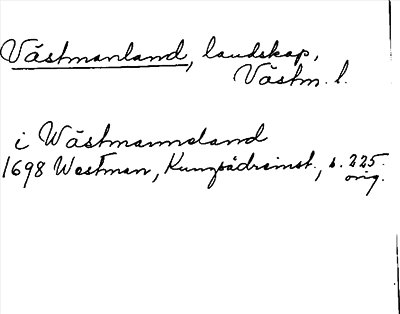 Västmanland, landskap,
Västm. l.
i Wästmanneland
1698 Westman, Kungsådreinst., s. 225.
orig.